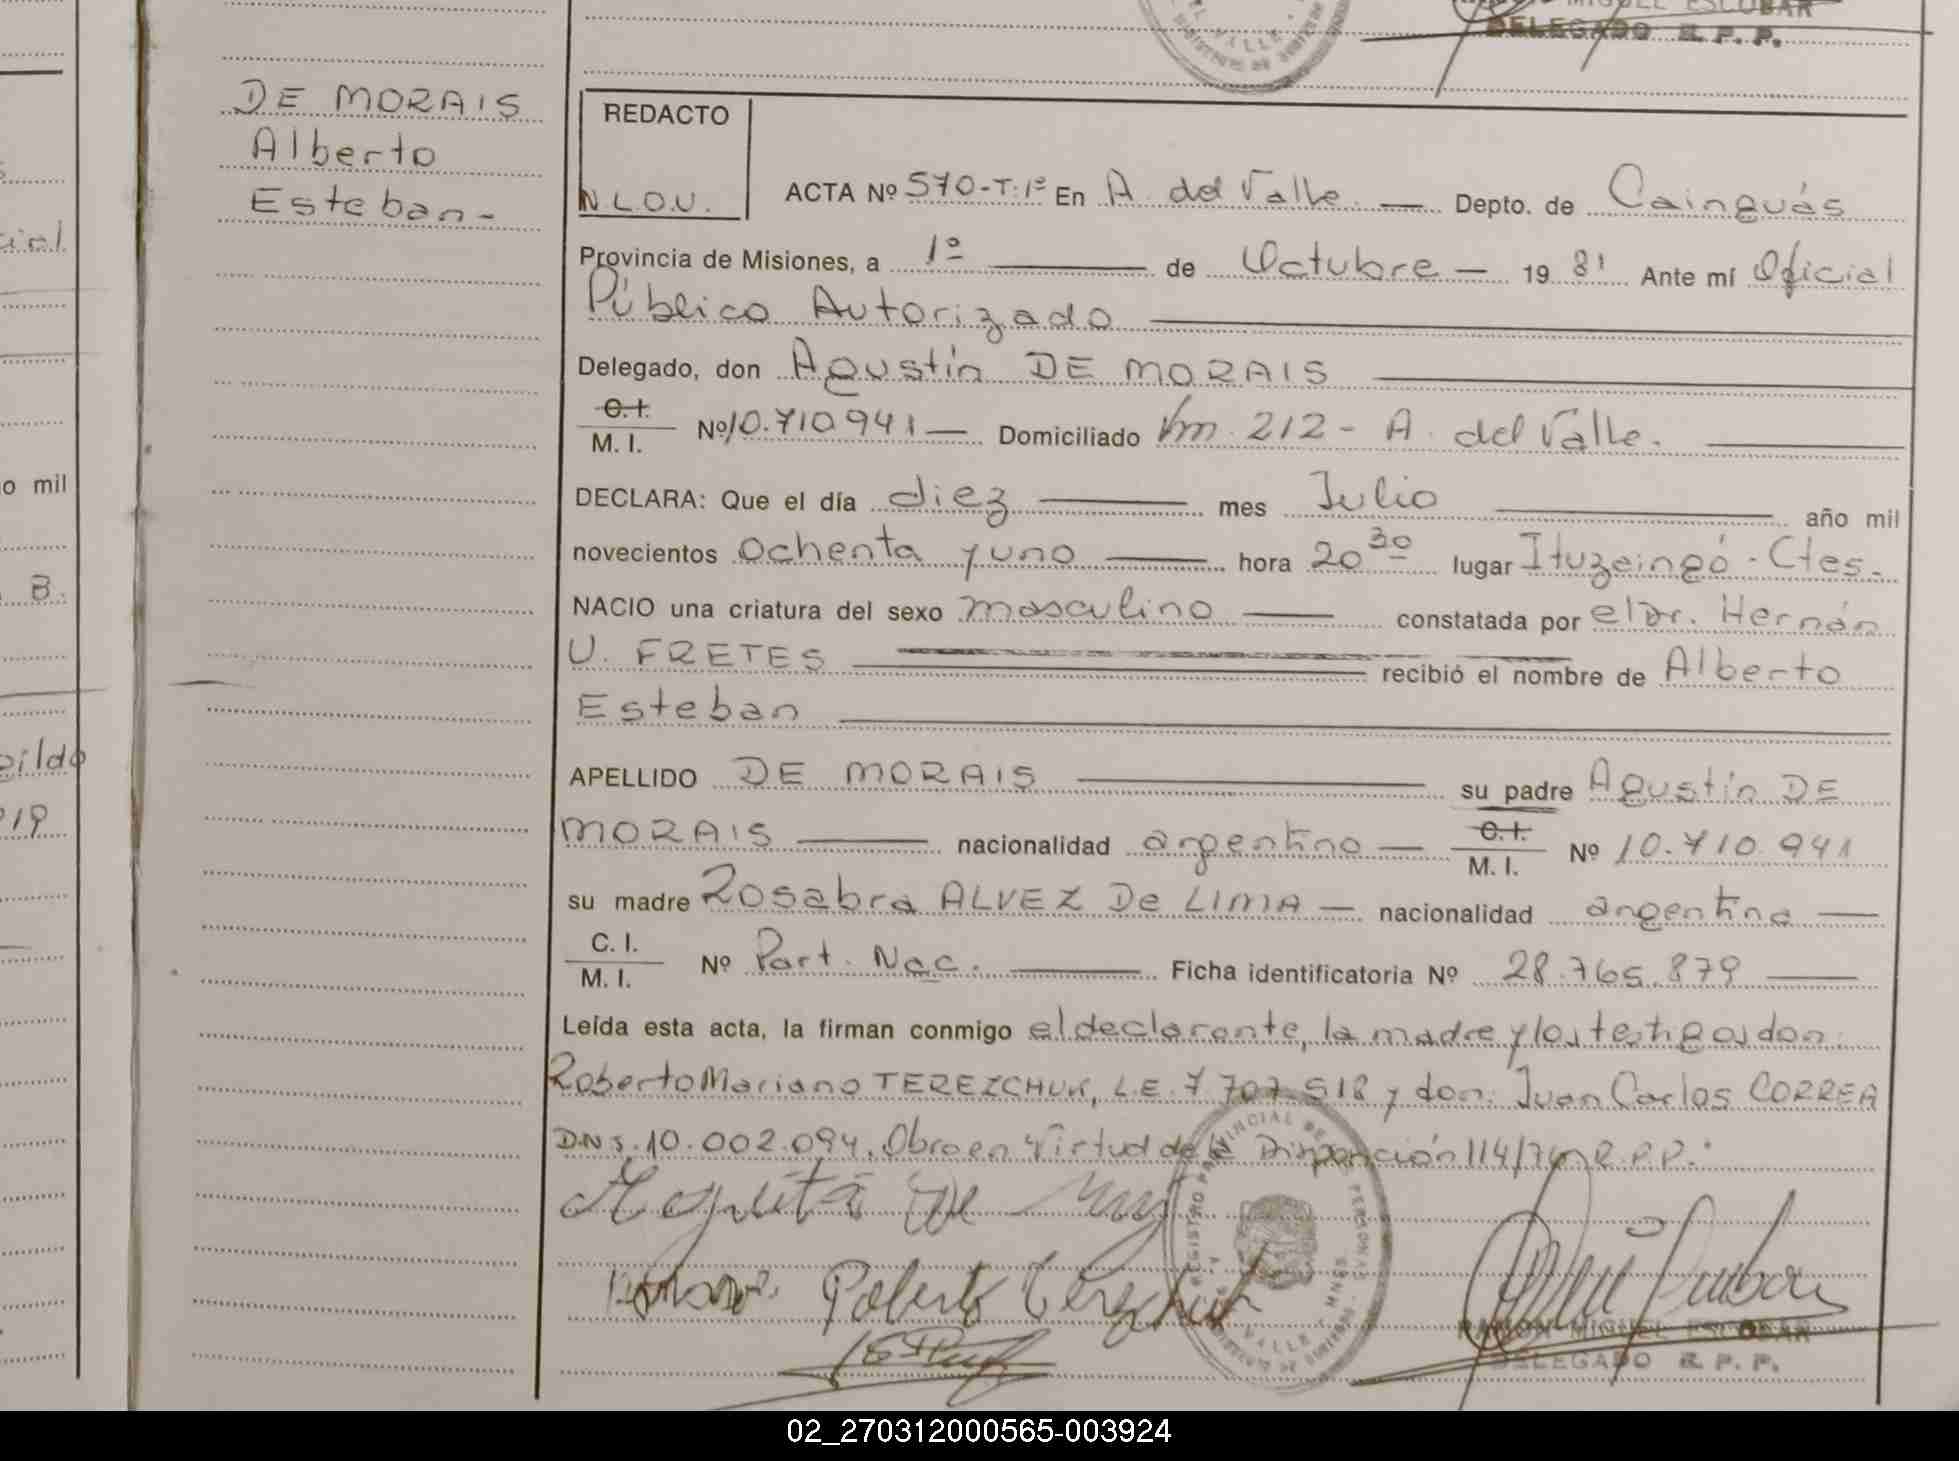 MIGUEL ESCOBAR
DELEGADO R. P. P.
DE MORAIS
Alberto
Esteban-
REDACTO
N.L.O.U.
ACTA Nº 570-T:1º En A. del Valle. — Depto. de Cainguás
Provincia de Misiones, a 1º — de Octubre — 19 81 Ante mí Oficial
Público Autorizado
Delegado, don Agustín DE MORAIS
C.I.
M. I. Nº 10.710.941 — Domiciliado Km 212 - A. del Valle.
DECLARA: Que el día diez — mes Julio — año mil
novecientos ochenta y uno — hora 20 30 lugar Ituzeingó - Ctes.
NACIO una criatura del sexo masculino — constatada por el Dr. Hernán
U. FRETES — recibió el nombre de Alberto
Esteban
APELLIDO DE MORAIS — su padre Agustín DE
MORAIS — nacionalidad argentino — C.I. M. I. Nº 10.710.941
su madre Rosabra ALVEZ De LIMA — nacionalidad argentina —
C. I.
M. I. Nº Part. Nac. — Ficha identificatoria Nº 28.765.879 —
Leída esta acta, la firman conmigo el declarante, la madre y los testigos don:
Roberto Mariano TEREZCHUK, L.E. 7.707.518 y don: Juan Carlos CORREA
D.N.I. 10.002.094. Obra en Virtud de la Disposición 114/74 R.P.P.:
Roberto Terezchuk
REGISTRO PROVINCIAL DE LAS PERSONAS
RAMON MIGUEL ESCOBAR
DELEGADO R. P. P.
o mil
B.
019
02_270312000565-003924